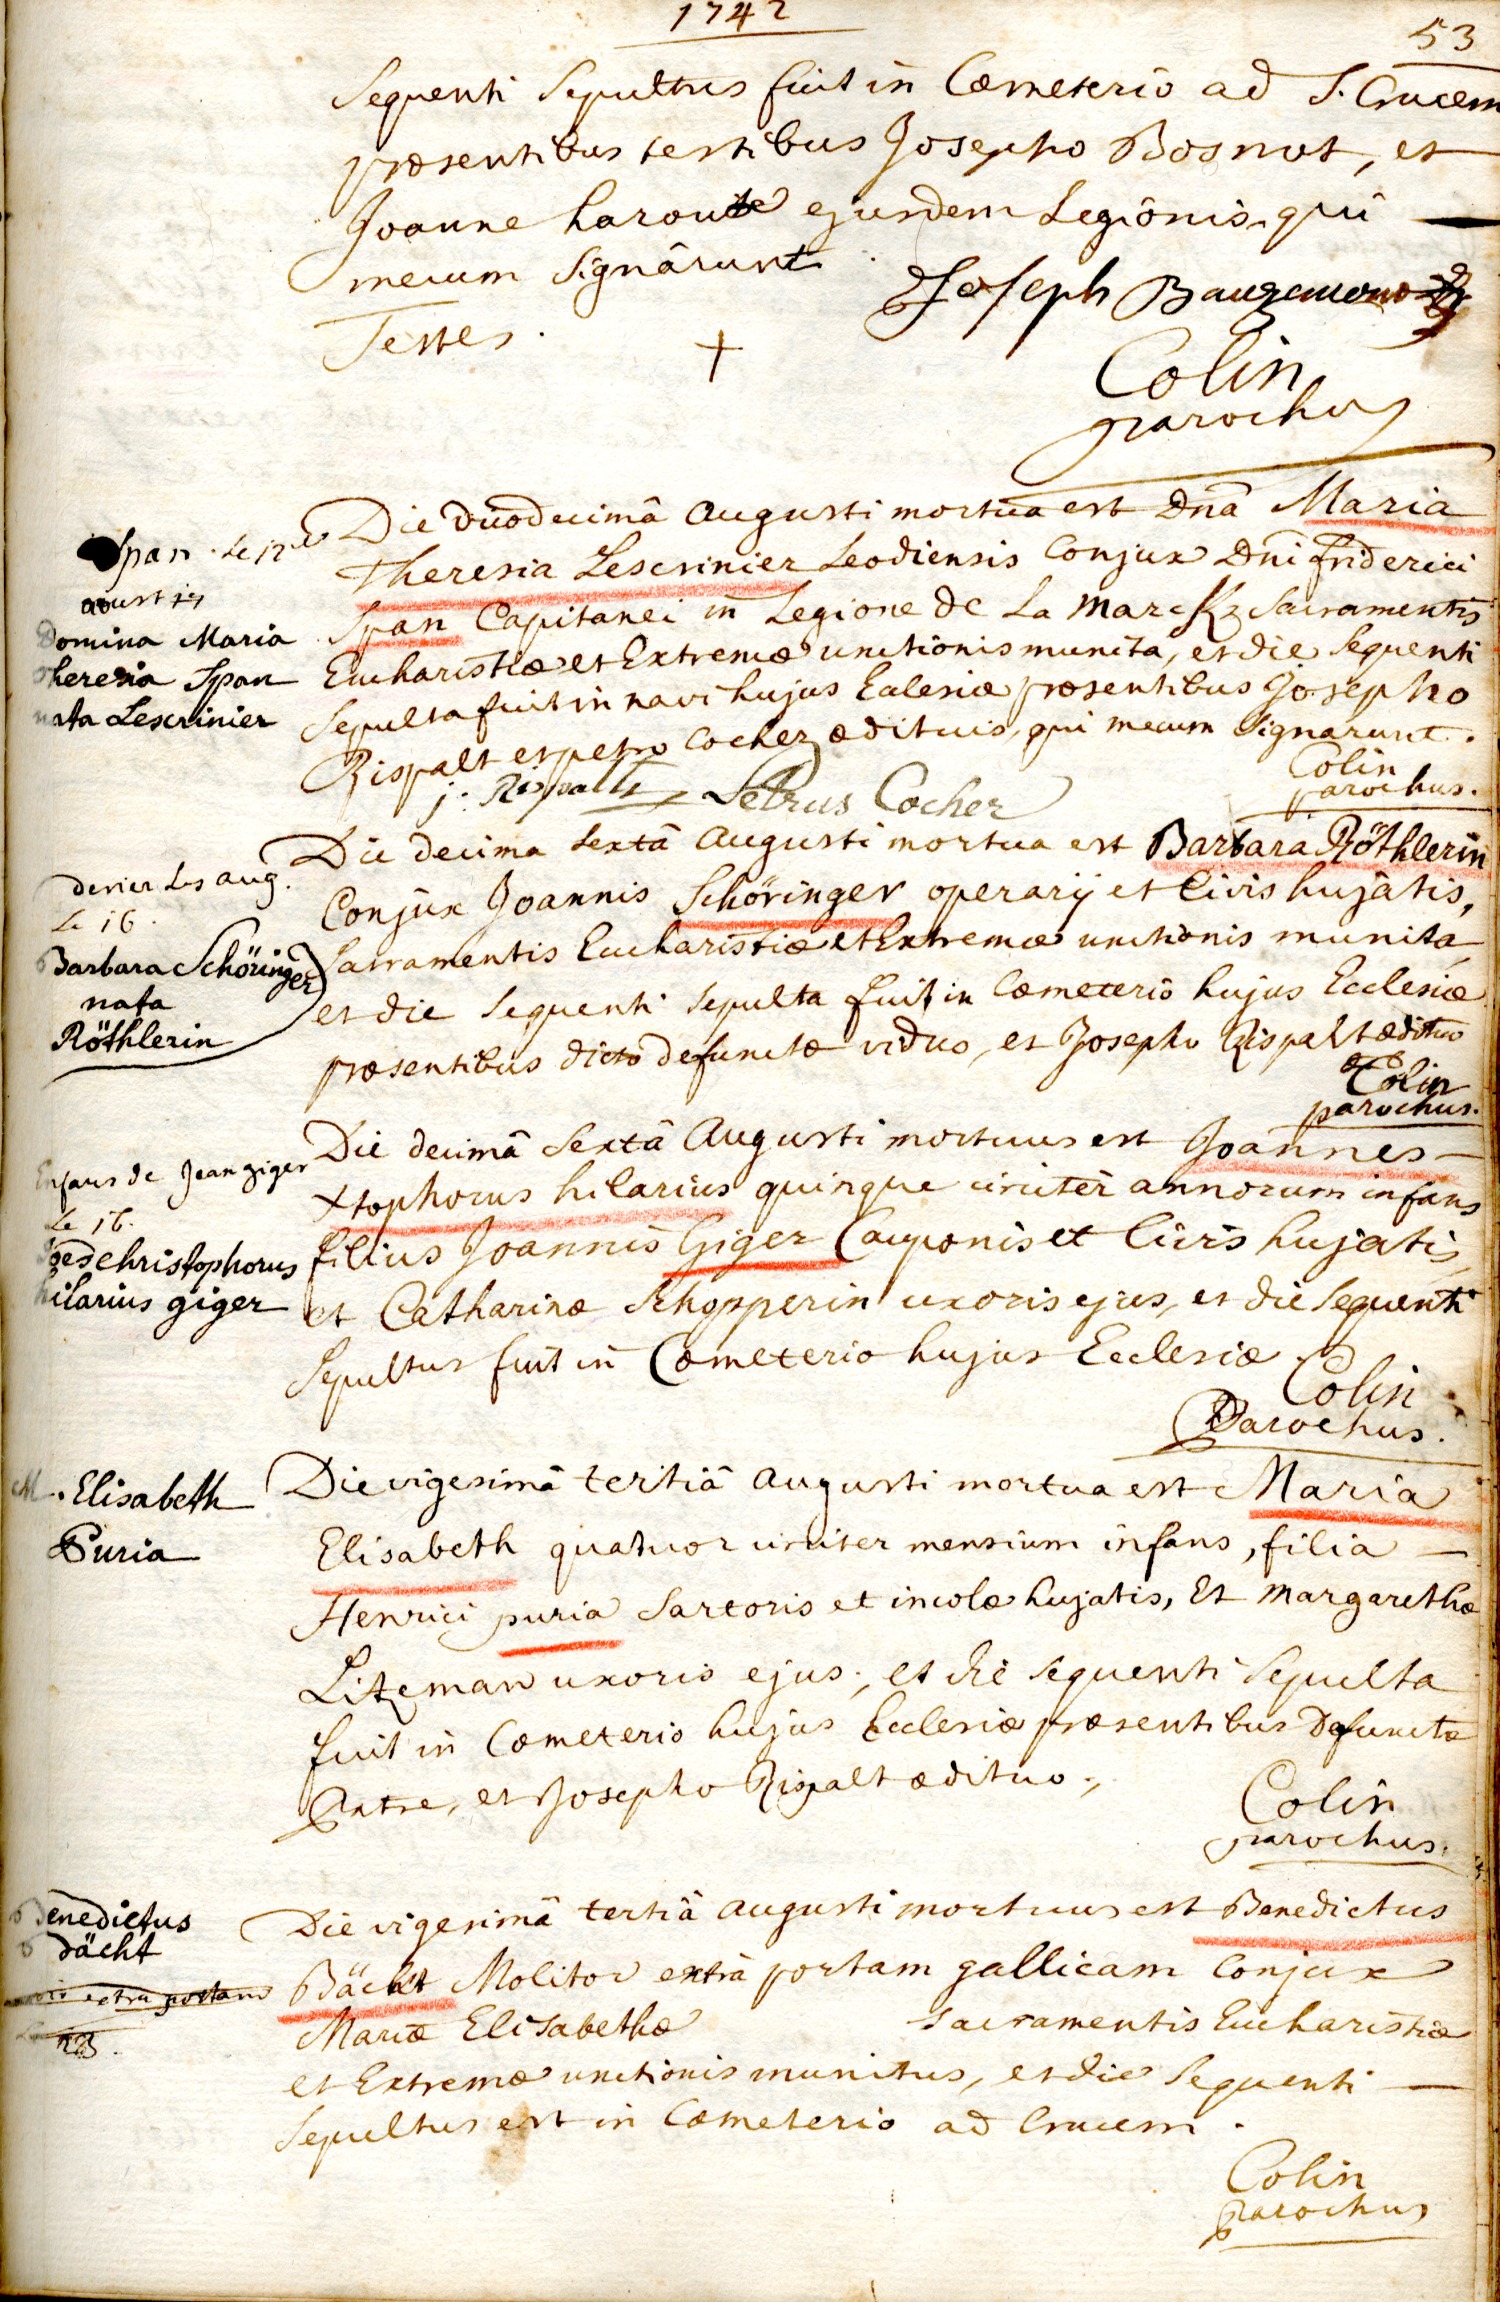 1742
53
Sequenti Sepultus fuit in Cœmeterio ad S. Crucem
præsentibus testibus Josepho Bosmot, et
Joanne haroute ejusdem Legionis, qui
mecum Signârunt
Joseph
Testes.
+
Colin
parochus
Span. Le 12
aoust
Domina Maria
Theresia Span
nata Lescrinier
Die duodecimâ Augusti mortua est Dña Maria
Theresia Lescrinier Leodiensis Conjux Dñi friderici
Span Capitanei in Legione de La Marck Sacramentis
Eucharistiæ et Extremæ unctionis munita, et die Sequenti
Sepulta fuit in navi hujus Eclesiæ præsentibus Josepho
Rispalt et petro Cocher ædituis, qui mecum Signarunt.
j: Rispalt Petrus Cocher
Colin
parochus.
dernier Les aug.
Le 16.
Barbara Schöringer
nata
Röthlerin
Die decima sextâ Augusti mortua est Barbara Röthlerin
Conjux Joannis Schöringer operarij et Civis hujatis,
Sacramentis Eucharistiæ et Extremæ unctionis munita
et die Sequenti Sepulta fuit in Cœmeterio hujus Ecclesiæ
præsentibus dicto defunctæ viduo, et Josepho Rispalt ædituo
Colin
parochus.
Enfans de Jean giger
Le 16.
Joes christophorus
hilarius giger
Die decimâ Sextâ Augusti mortuus est Joannes
Xtophorus hilarius quinque circiter annorum infans
filius Joannis Giger Cauponis et Civis hujatis
et Catharinæ Schopperin uxoris ejus, et die Sequenti
Sepultus fuit in Cœmeterio hujus Ecclesiæ.
Colin
Parochus.
M. Elisabeth
Puria
Die vigesimâ tertiâ Augusti mortua est Maria
Elisabeth quatuor circiter mensium infans, filia
Henrici puria Sartoris et incolæ hujatis, Et Margarethæ
Litzeman uxoris ejus, et die sequenti Sepulta
fuit in Cœmeterio hujus Ecclesiæ præsentibus defunctæ
Patre, et Josepho Rispalt ædituo.
Colin
parochus.
Benedictus
Bächt
extra portam
23.
Die vigesimâ tertiâ Augusti mortuus est Benedictus
Bächt Molitor extrà portam gallicam Conjux
Mariæ Elisabethæ Sacramentis Eucharistiæ
et Extremæ unctionis munitus, et die Sequenti
Sepultus est in Cœmeterio ad Crucem.
Colin
parochus